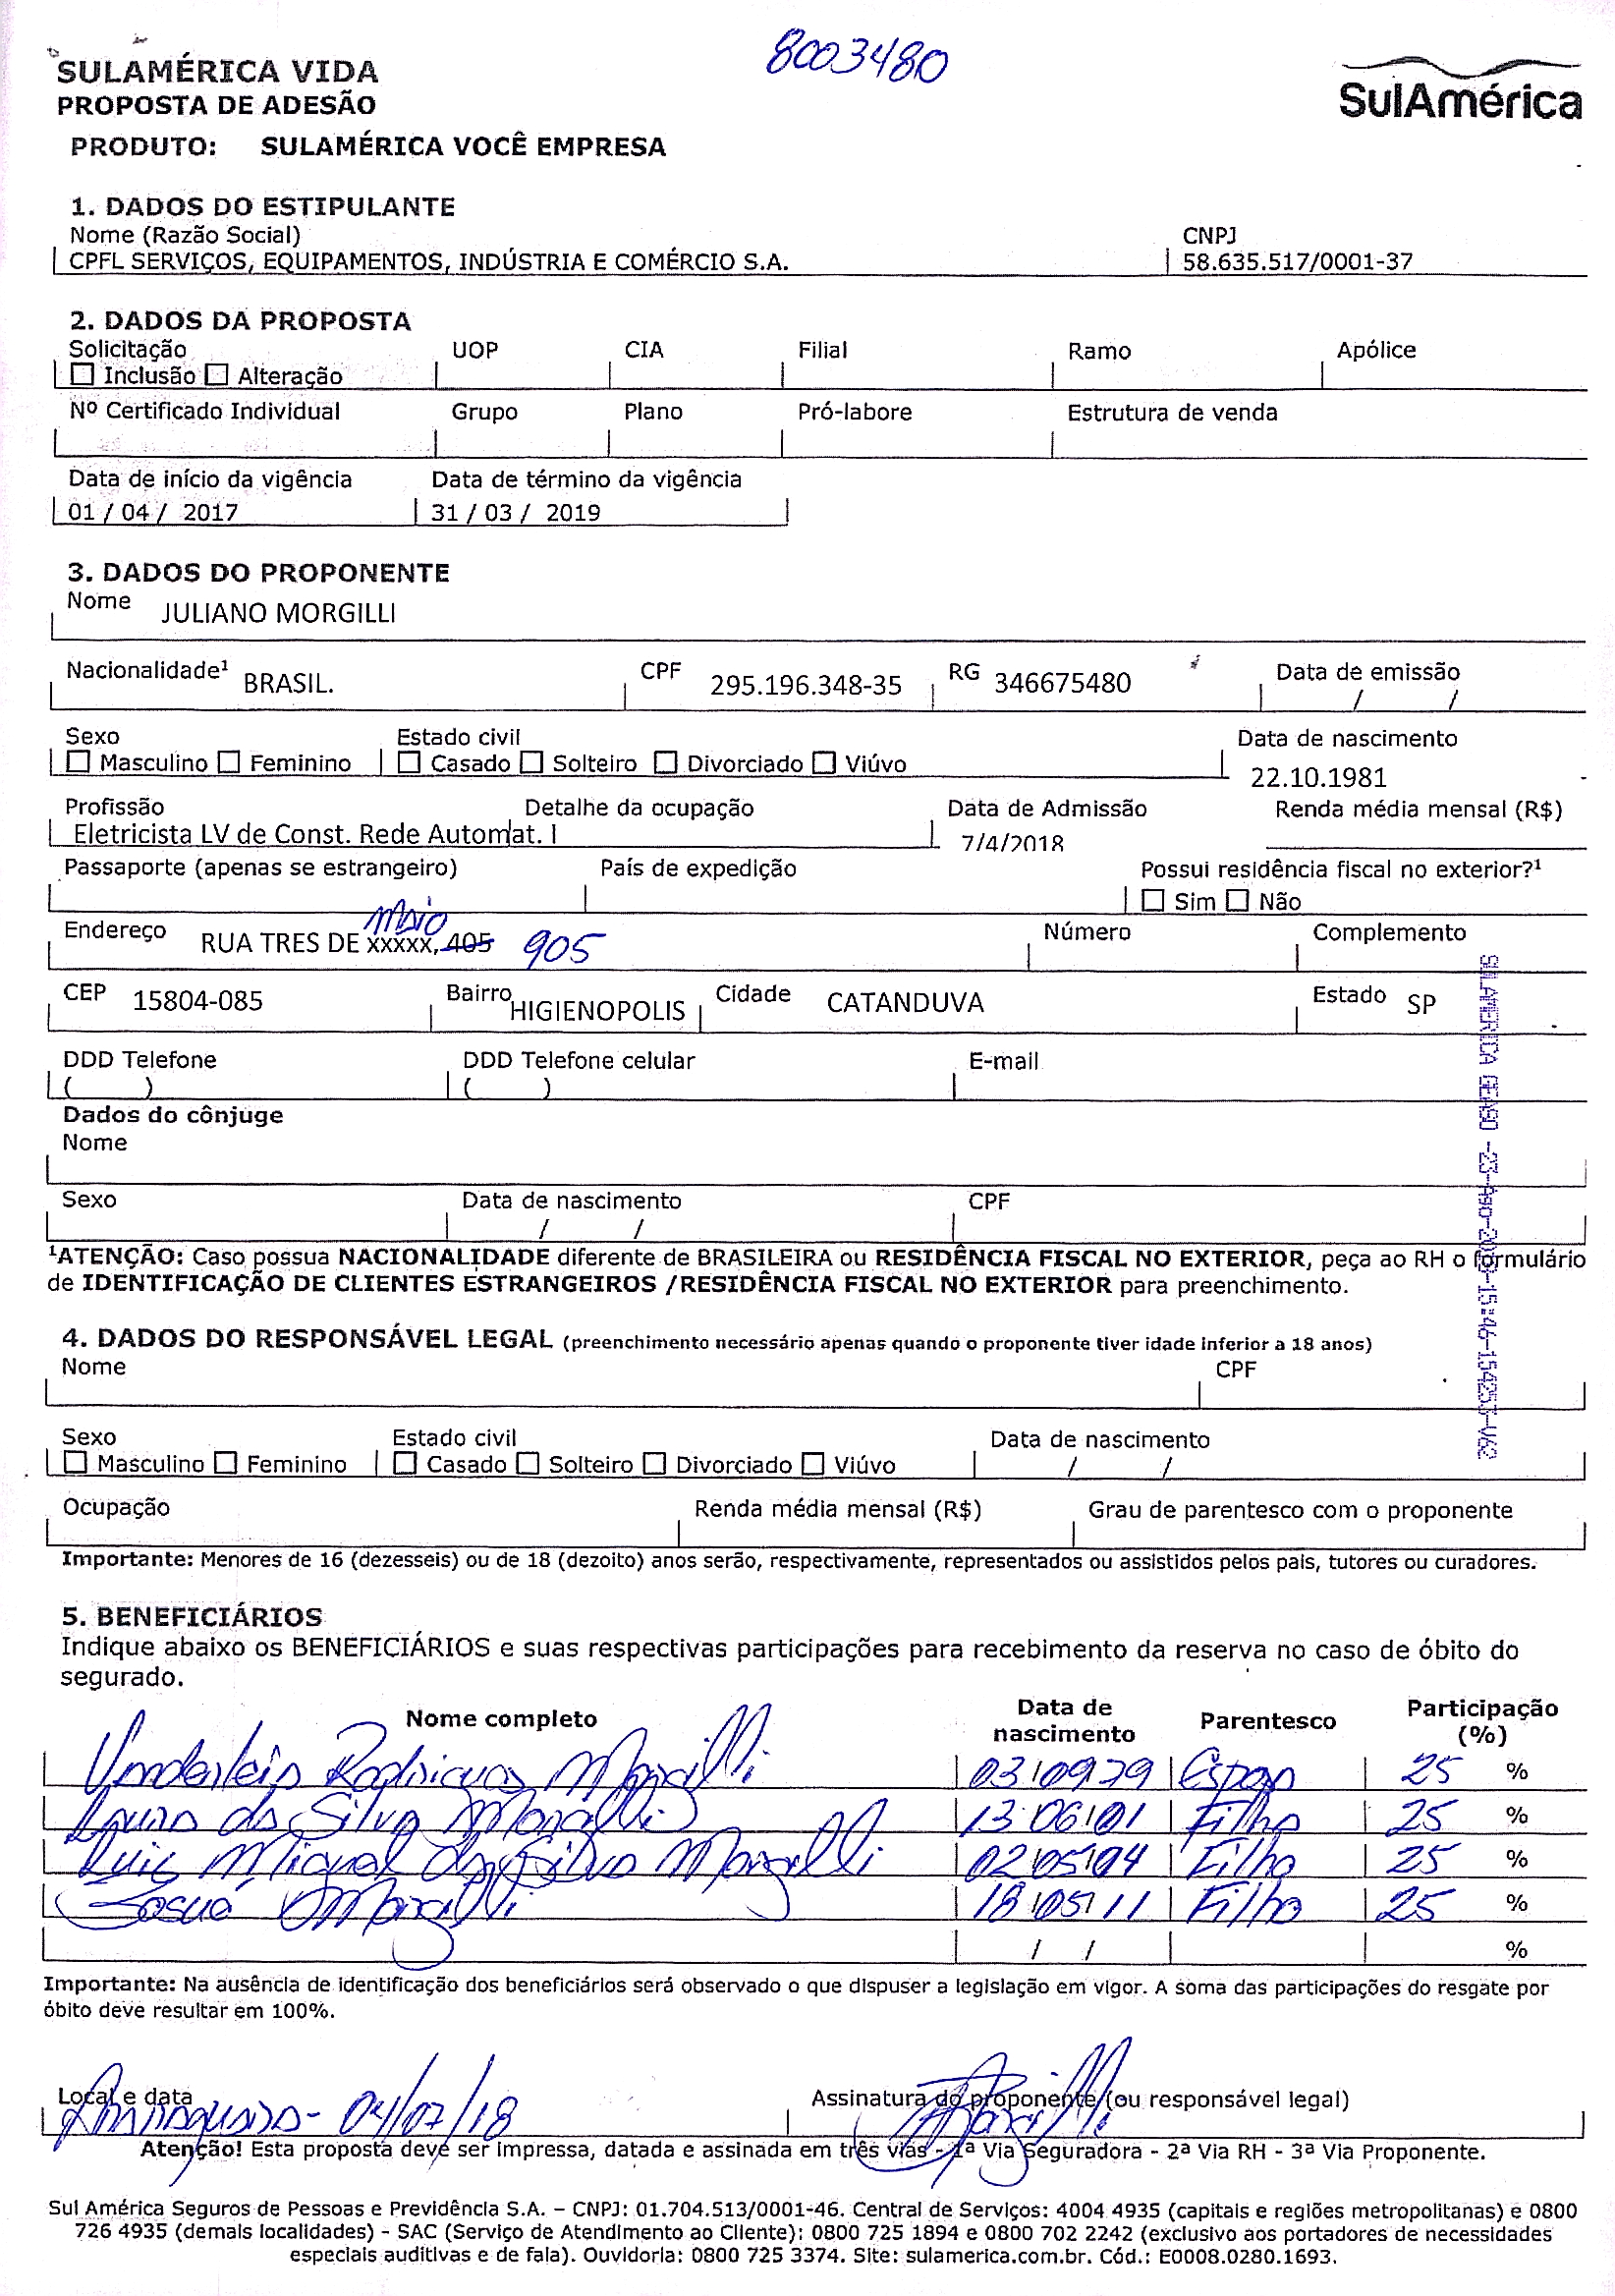 8003480
SULAMÉRICA VIDA
PROPOSTA DE ADESÃO
SulAmérica
PRODUTO: SULAMÉRICA VOCÊ EMPRESA
1. DADOS DO ESTIPULANTE
Nome (Razão Social) CNPJ
CPFL SERVIÇOS, EQUIPAMENTOS, INDÚSTRIA E COMÉRCIO S.A. 58.635.517/0001-37
2. DADOS DA PROPOSTA
Solicitação UOP CIA Filial Ramo Apólice
Inclusão Alteração
Nº Certificado Individual Grupo Plano Pró-labore Estrutura de venda
Data de início da vigência Data de término da vigência
01 / 04 / 2017 31 / 03 / 2019
3. DADOS DO PROPONENTE
Nome JULIANO MORGILLI
Nacionalidade¹ BRASIL. CPF 295.196.348-35 RG 346675480 Data de emissão
/ /
Sexo Estado civil Data de nascimento
Masculino Feminino Casado Solteiro Divorciado Viúvo 22.10.1981
Profissão Detalhe da ocupação Data de Admissão Renda média mensal (R$)
Eletricista LV de Const. Rede Automat. I 7/4/2018
Passaporte (apenas se estrangeiro) País de expedição Possui residência fiscal no exterior?¹
Sim Não
Maio
Endereço RUA TRES DE xxxxx, 405 905 Número Complemento
CEP 15804-085 Bairro HIGIENOPOLIS Cidade CATANDUVA Estado SP
DDD Telefone DDD Telefone celular E-mail
( ) ( )
Dados do cônjuge
Nome
Sexo Data de nascimento CPF
/ /
¹ATENÇÃO: Caso possua NACIONALIDADE diferente de BRASILEIRA ou RESIDÊNCIA FISCAL NO EXTERIOR, peça ao RH o formulário
de IDENTIFICAÇÃO DE CLIENTES ESTRANGEIROS /RESIDÊNCIA FISCAL NO EXTERIOR para preenchimento.
4. DADOS DO RESPONSÁVEL LEGAL (preenchimento necessário apenas quando o proponente tiver idade inferior a 18 anos)
Nome CPF
Sexo Estado civil Data de nascimento
Masculino Feminino Casado Solteiro Divorciado Viúvo / /
Ocupação Renda média mensal (R$) Grau de parentesco com o proponente
Importante: Menores de 16 (dezesseis) ou de 18 (dezoito) anos serão, respectivamente, representados ou assistidos pelos pais, tutores ou curadores.
5. BENEFICIÁRIOS
Indique abaixo os BENEFICIÁRIOS e suas respectivas participações para recebimento da reserva no caso de óbito do
segurado.
Nome completo Data de nascimento Parentesco Participação (%)
Rodrigues Morgilli 03/09/79 25 %
da Silva Morgilli 13/06/01 Filho 25 %
Luis Miguel da Silva Morgilli 02/05/04 Filho 25 %
Josué Morgilli 18/05/11 Filho 25 %
/ / %
Importante: Na ausência de identificação dos beneficiários será observado o que dispuser a legislação em vigor. A soma das participações do resgate por
óbito deve resultar em 100%.
Local e data Assinatura do proponente (ou responsável legal)
Araraquara - 04/07/18 Morgilli
Atenção! Esta proposta deve ser impressa, datada e assinada em três vias - 1ª Via Seguradora - 2ª Via RH - 3ª Via Proponente.
Sul América Seguros de Pessoas e Previdência S.A. – CNPJ: 01.704.513/0001-46. Central de Serviços: 4004 4935 (capitais e regiões metropolitanas) e 0800
726 4935 (demais localidades) - SAC (Serviço de Atendimento ao Cliente): 0800 725 1894 e 0800 702 2242 (exclusivo aos portadores de necessidades
especiais auditivas e de fala). Ouvidoria: 0800 725 3374. Site: sulamerica.com.br. Cód.: E0008.0280.1693.